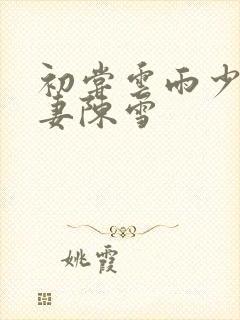 初尝云雨少
妻陈雪
姚霞